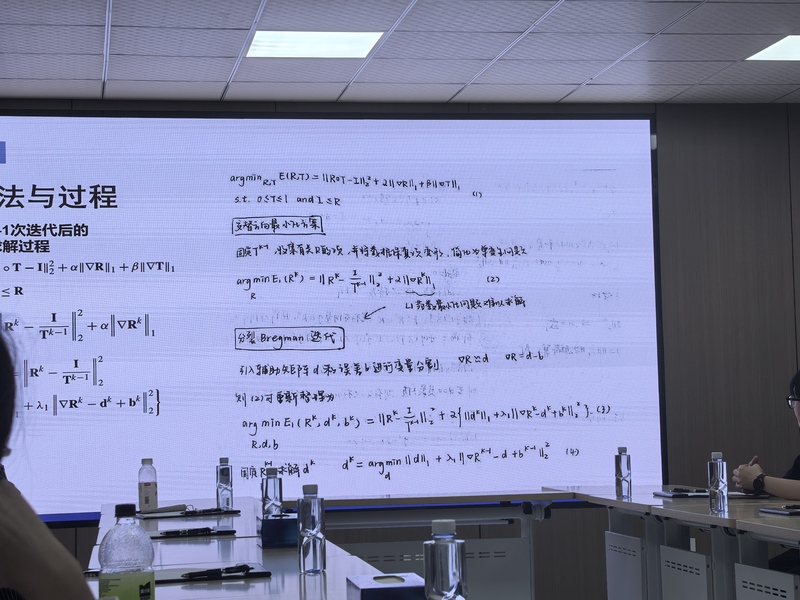 法与过程
-1次迭代后的
求解过程
∘ T − I‖₂² + α‖∇R‖₁ + β‖∇T‖₁
≤ R
R^k − I/T^{k−1}‖₂² + α‖∇R^k‖₁
‖R^k − I/T^{k−1}‖₂²
+ λ₁‖∇R^k − d^k + b^k‖₂²}
argmin_{R,T} E(R,T) = ‖R∘T − I‖₂² + α‖∇R‖₁ + β‖∇T‖₁ (1)
s.t. 0≤T≤1 and I ≤ R
交替方向最小化方案
固定 T^{k-1}, 收集有关R的项, 并将数据保真项变形, 简化为单变量问题
argmin_R E₁(R^k) = ‖R^k − I/T^{k-1}‖₂² + α‖∇R^k‖₁ (2)
L1范数最小化问题 难以求解
分裂 Bregman 迭代
引入辅助矩阵 d 和误差 b 进行变量分割 ∇R≈d ∇R = d-b
则 (2) 可重新整理为
argmin_{R,d,b} E₁(R^k, d^k, b^k) = ‖R^k − I/T^{k-1}‖₂² + α{‖d^k‖₁ + λ₁‖∇R^k − d^k + b^k‖₂²}. (3)
固定 R^{k-1} 求解 d^k d^k = argmin_d ‖d‖₁ + λ₁‖∇R^{k-1} − d + b^{k-1}‖₂² (4)